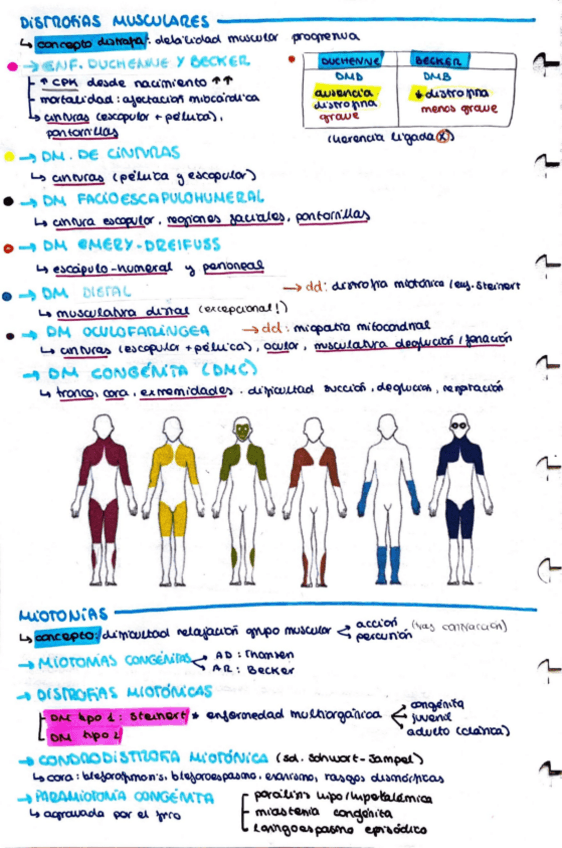 DISTROFIAS MUSCULARES
↳ concepto distrofia: debilidad muscular progresiva
→ ENF. DUCHENNE Y BECKER
↑ CPK desde nacimiento ↑↑
mortalidad: afectación miocárdica
↳ cinturas (escapular + pélvica),
pantorrillas
DUCHENNE BECKER
DMD DMB
ausencia distrofina grave
↓ distrofina menos grave
(herencia ligada X)
→ DM. DE CINTURAS
↳ cinturas (pélvica y escapular)
→ DM FACIOESCAPULOHUMERAL
↳ cintura escapular, regiones faciales, pantorrillas
→ DM EMERY-DREIFUSS
↳ escápulo-humeral y peroneal
→ DM DISTAL → dd: distrofia miotónica / enf. Steinert
↳ musculatura distal (excepcional!)
→ DM OCULOFARÍNGEA → dd: miopatía mitocondrial
↳ cinturas (escapular + pélvica), ocular, musculatura deglución / fonación
→ DM CONGÉNITA (DMC)
↳ tronco, cara, extremidades. dificultad succión, deglución, respiración
MIOTONÍAS
↳ concepto: dificultad relajación grupo muscular < acción (tras contracción)
percusión
→ MIOTONÍAS CONGÉNITAS < AD: Thomsen
AR: Becker
→ DISTROFIAS MIOTÓNICAS
DM tipo 1: Steinert * enfermedad multiorgánica < congénita
juvenil
adulto (clásica)
DM tipo 2
→ CONDRODISTROFIA MIOTÓNICA (sd. Schwart-Jampel)
↳ cara: blefarofimosis, blefaroespasmo, enanismo, rasgos dismórficos
→ PARAMIOTONÍA CONGÉNITA
↳ agravada por el frío
parálisis hipo/hiperkalémica
miastenia congénita
laringoespasmo episódico